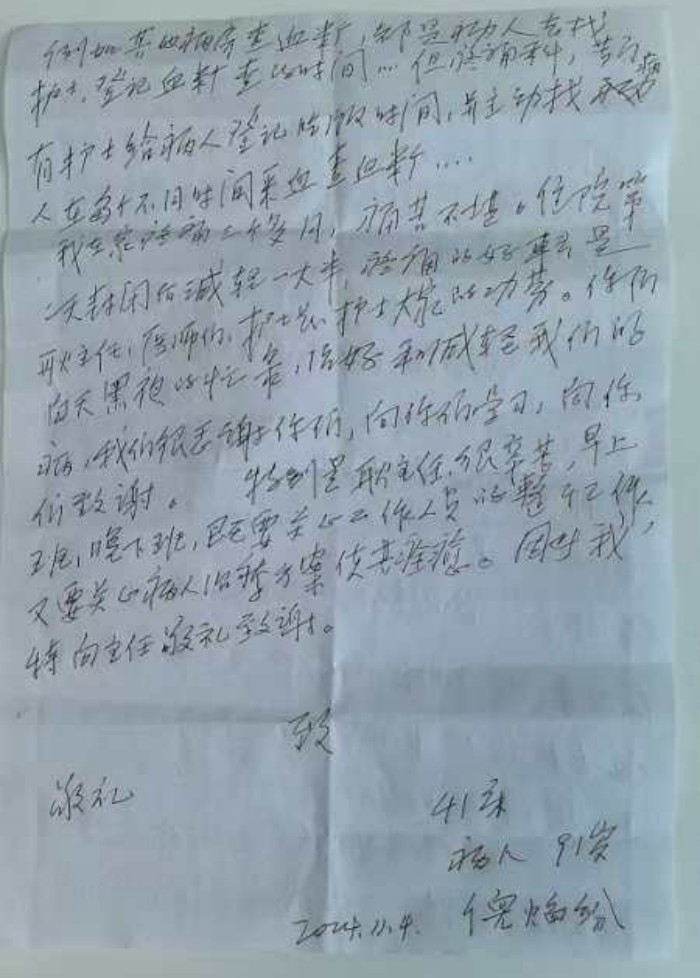 例如其他病房查血糖，都是病人去找
护士，登记血糖查的时间…但疼痛科，
有护士给病人登记吃饭时间，并主动找病
人在每个不同时间采血查血糖….
我在家疼痛三个多月，痛苦不堪。住院第
一次封闭后减轻一大半，疼痛的好转是
耿主任，医师们，护士长护士大家的功劳。你们
白天黑夜的忙着，治好和减轻我们的
病，我们很感谢你们，向你们学习，向你
们致谢。 特别是耿主任很辛苦，早上
班，晚下班，既要关心工作人员的整个工作
又要关心病人治疗方案使其痊愈。因此我，
特向主任敬礼致谢。
致
敬礼
41床
病人 91岁
2024.11.4. 倪焕